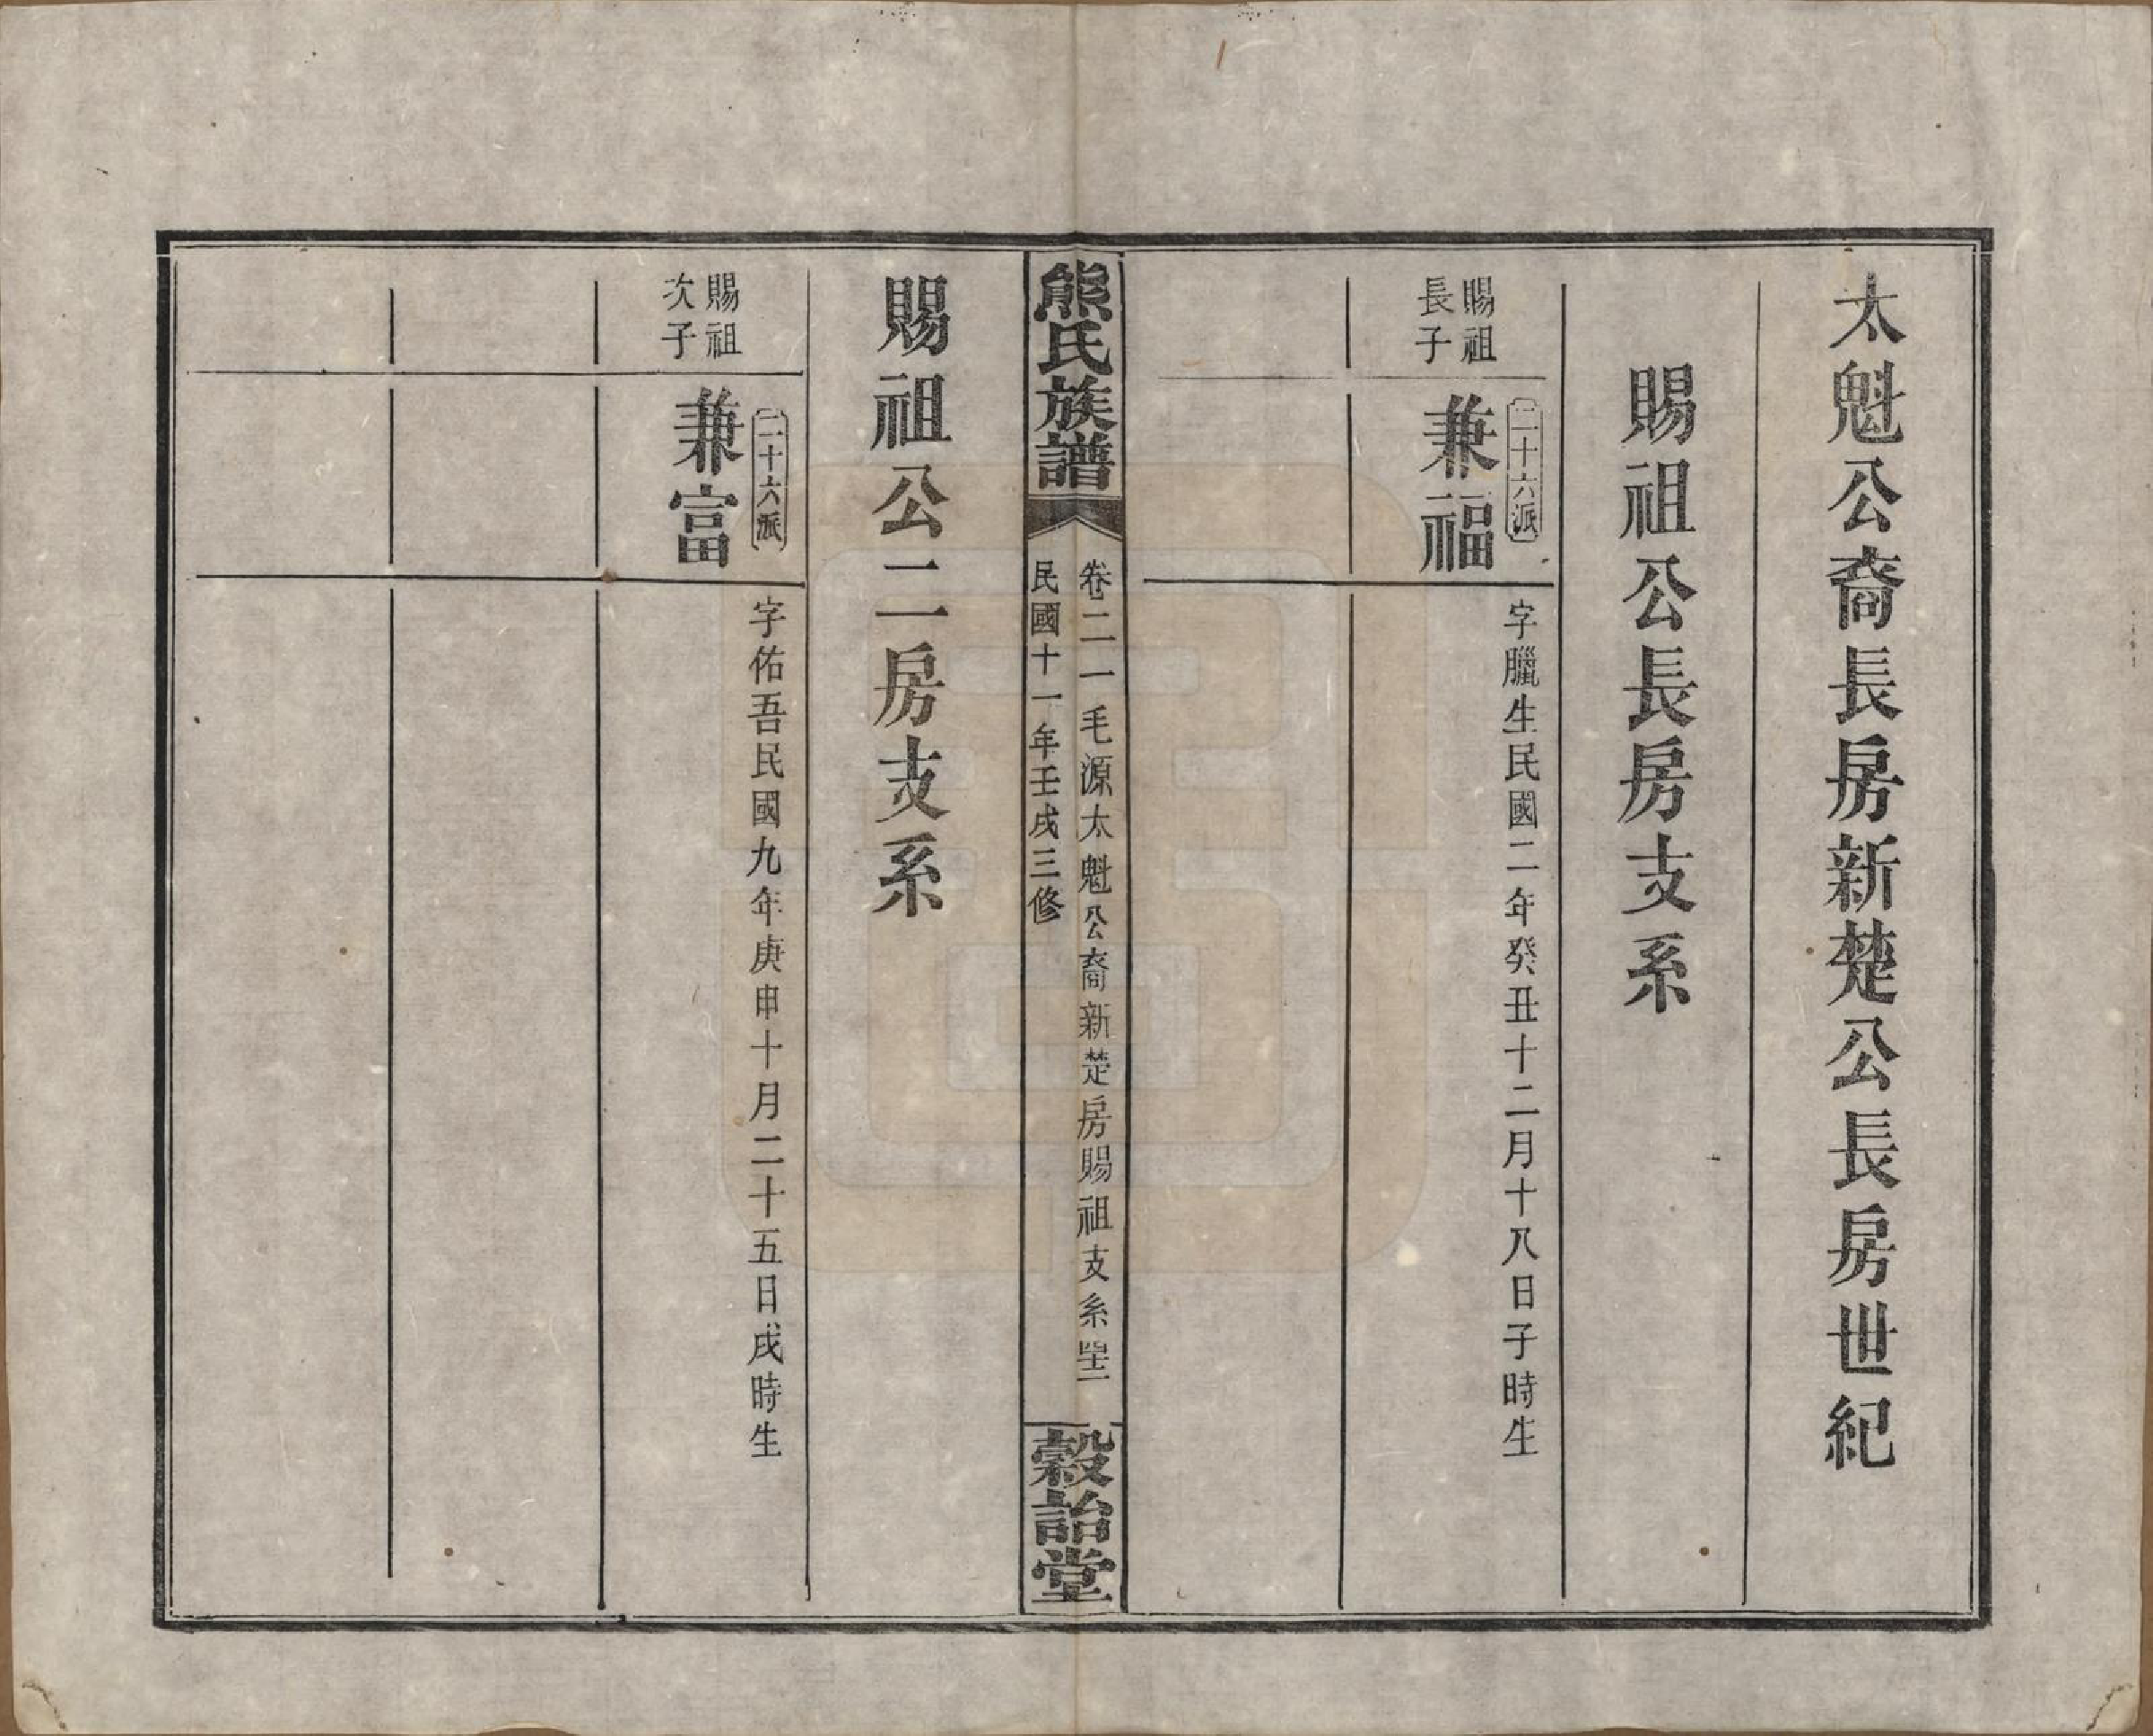 太魁公裔長房新楚公長房世紀
賜祖公長房支系
賜祖
長子
二十六派
兼福
字臘生民國二年癸丑十二月十八日子時生
熊氏族譜
卷二一毛源太魁公裔新楚房賜祖支系
民國十一年壬戌三修
穀詒堂
賜祖公二房支系
賜祖
次子
二十六派
兼富
字佑吾民國九年庚申十月二十五日戌時生